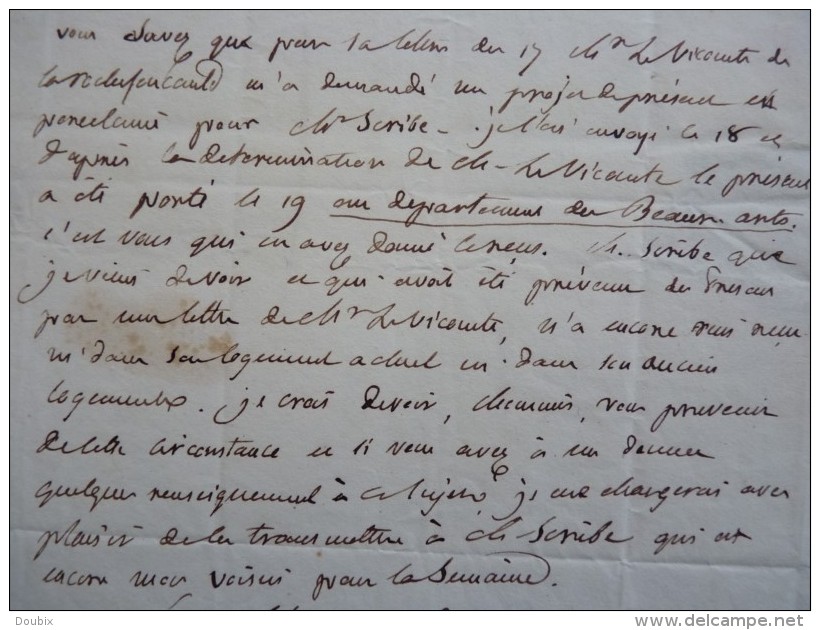 vous savez que par sa lettre du 17 Mr Le Vicomte de
larochefoucauld m'a demandé un projet de présent en
porcelaine pour Mr Scribe. je l'ai envoyé le 18 et
d'après la determination de Mr Le Vicomte le présent
a été porté le 19 au departement des Beaux-arts.
c'est vous qui en avez donné le reçu. Mr Scribe que
je viens de voir et qui avoit été prévenu du présent
par une lettre de Mr Le Vicomte, n'a encore rien reçu
ni dans son logement actuel ni dans son ancien
logement. je crois devoir, vous prevenir
de cette circonstance et si vous avez à me donner
quelque renseignement à ce sujet je me chargerai avec
plaisir de les transmettre à Mr Scribe qui est
encore mon voisin pour la Semaine.
Doubix
www.delcampe.net